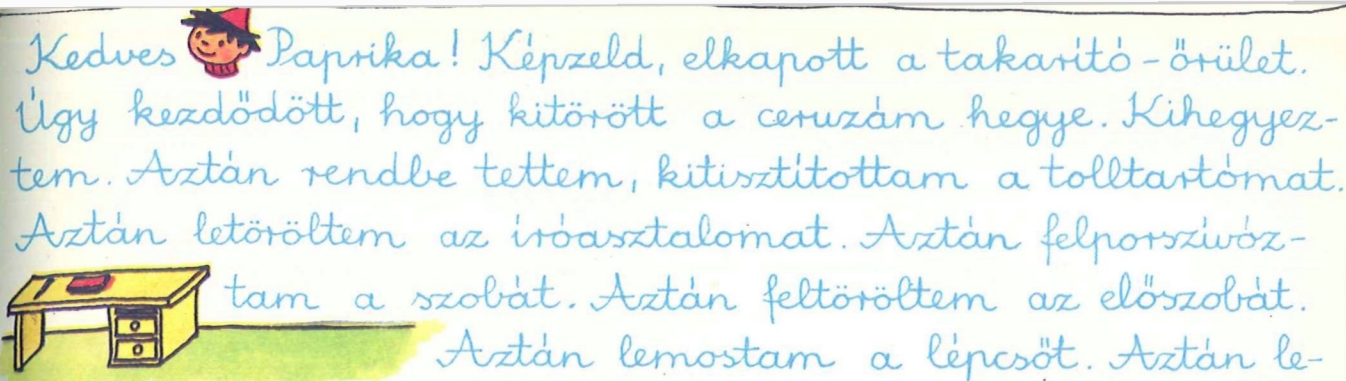 Kedves Paprika! Képzeld, elkapott a takarító-őrület.
Úgy kezdődött, hogy kitörött a ceruzám hegye. Kihegyez-
tem. Aztán rendbe tettem, kitisztítottam a tolltartómat.
Aztán letöröltem az íróasztalomat. Aztán felporszívóz-
tam a szobát. Aztán feltöröltem az előszobát.
Aztán lemostam a lépcsőt. Aztán le-